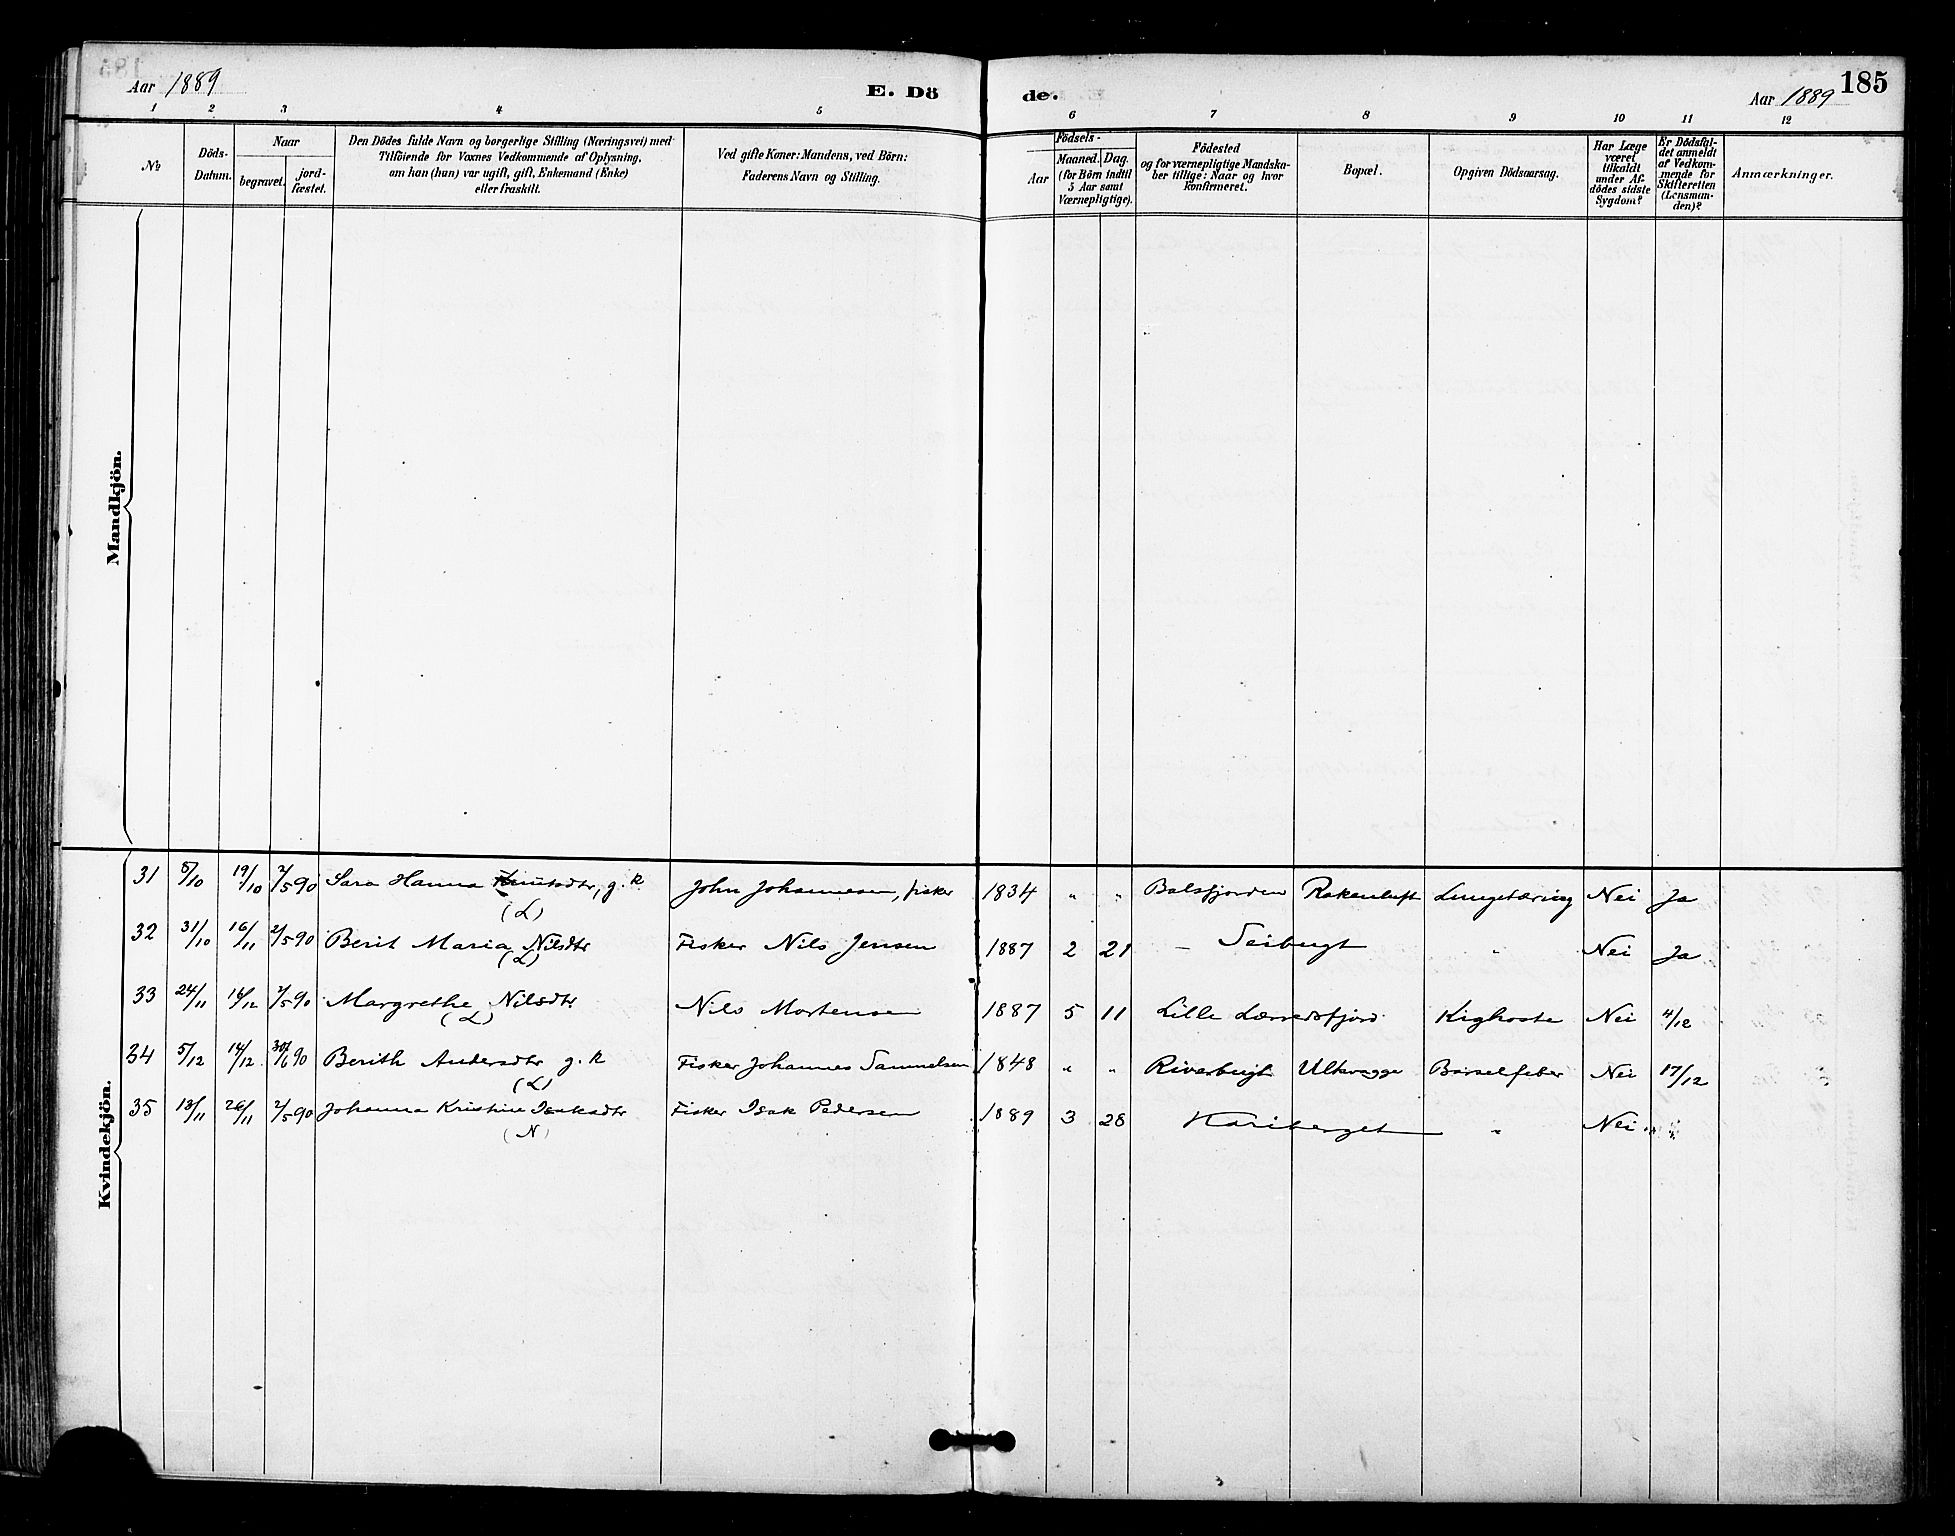 185
Aar 1889
E. Dö
de.
Aar 1889
1 2 3 4 5
6 7 8 9 10 11 12
No
Döds-
Datum.
Naar
begravet.
jord-
fæstet.
Den Dödes fulde Navn og borgerlige Stilling (Næringsvei) med
Tilföiende for Voxnes Vedkommende af Oplysning,
om han (hun) var ugift, gift, Enkemand (Enke)
eller fraskilt.
Ved gifte Koner: Mandens, ved Börn:
Faderens Navn og Stilling.
Födsels-
Aar
Maaned. Dag.
(for Börn indtil
5 Aar samt
Værnepligtige).
Födested
og for værnepligtige Mandska-
ber tillige: Naar og hvor
konfirmeret.
Bopæl.
Opgiven Dödsaarsag.
Har Læge
været
tilkaldt
under Af-
dödes sidste
Sygdom?
Er Dödsfal-
det anmeldt
af Vedkom-
mende for
Skifteretten
(Lensman-
den)?
Anmærkninger.
Mandkjön.
Kvindekjön.
31 8/10 19/10 2/5 90 Sara Hanna Knutsdtr, g. k John Johannesen, fisker 1834 " " Balsfjorden Lungetæring Nei Ja
(L)
32 31/10 16/11 2/5 90 Berit Maria Nilsdtr Fisker Nils Jensen 1887 2 21 – Seibugt " Nei Ja
(L)
33 24/11 16/12 2/5 90 Margrethe Nilsdtr Nils Mortensen 1887 5 11 Lille Lerresfjord Kighoste Nei 4/12
(L)
34 5/12 14/12 30/6 90 Berith Andersdtr g. k Fisker Johannes Sammelsen 1848 " " Riverbugt Ultevagge Barselfeber Nei 17/12
(L)
35 13/11 26/11 2/5 90 Johanna Kristine Isaksdtr Fisker Isak Pedersen 1889 3 28 Hariberget " Nei
(N)